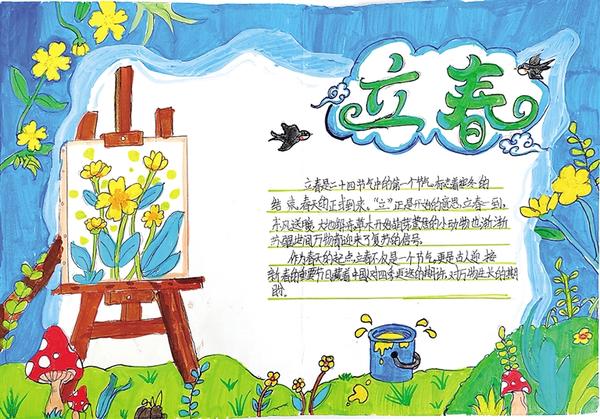 立春
立春是二十四节气中的第一个节气,标志着寒冬的
结束,春天的正式到来。"立"正是开始的意思,立春一到,
东风送暖,大地解冻,草木开始萌芽,蛰居的小动物也渐渐
苏醒,世间万物都迎来了复苏的信号。
作为春天的起点,立春不仅是一个节气,更是古人迎接
新春的重要节日,藏着中国对四季更迭的期许,对万物生长的期
盼。